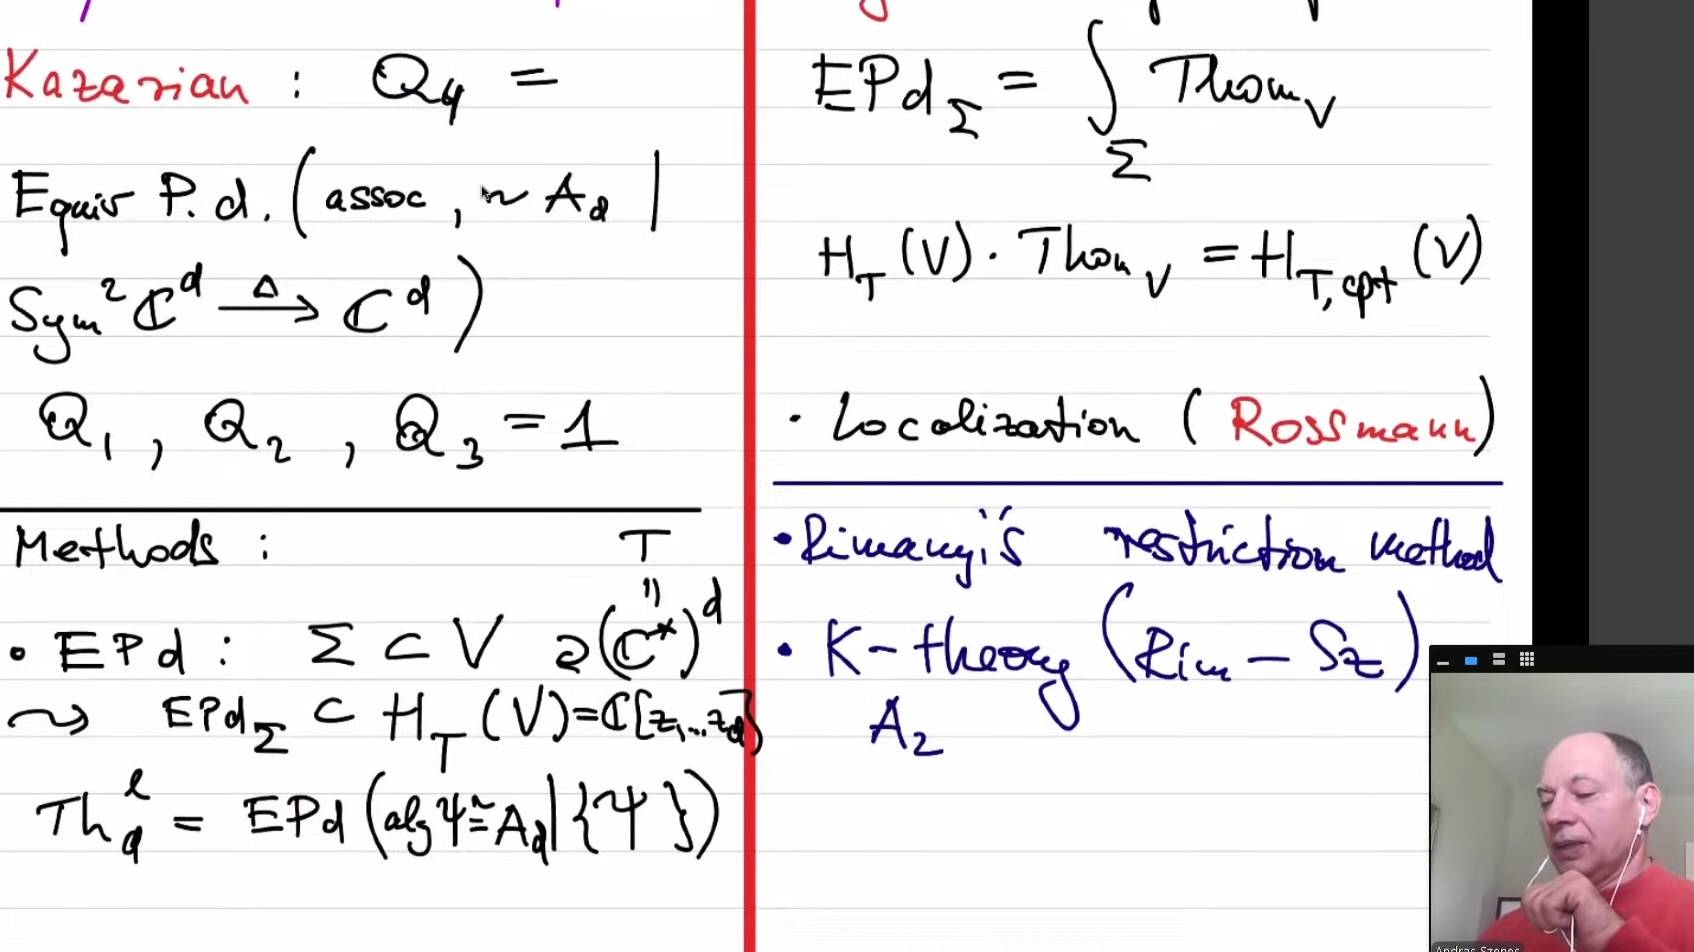 Kazarian : Q₄ =
Equiv P.d. ( assoc , ~ A_d |
Sym² ℂ^d —Δ→ ℂ^d )
Q₁ , Q₂ , Q₃ = 1
Methods :
T
"
• EPd : Σ ⊂ V ↻ (ℂ*)^d
⤳ EPd_Σ ⊂ H_T (V) = ℂ[z₁...z_d]
Th_d^ℓ = EPd (alg ψ ≅ A_d | {ψ})
EPd_Σ = ∫_Σ Thom_V
H_T (V) · Thom_V = H_{T, cpt} (V)
• Localization ( Rossmann )
• Rimanyi's restriction method
• K-theory ( Rim – Sz )
A₂
Andras Szenes